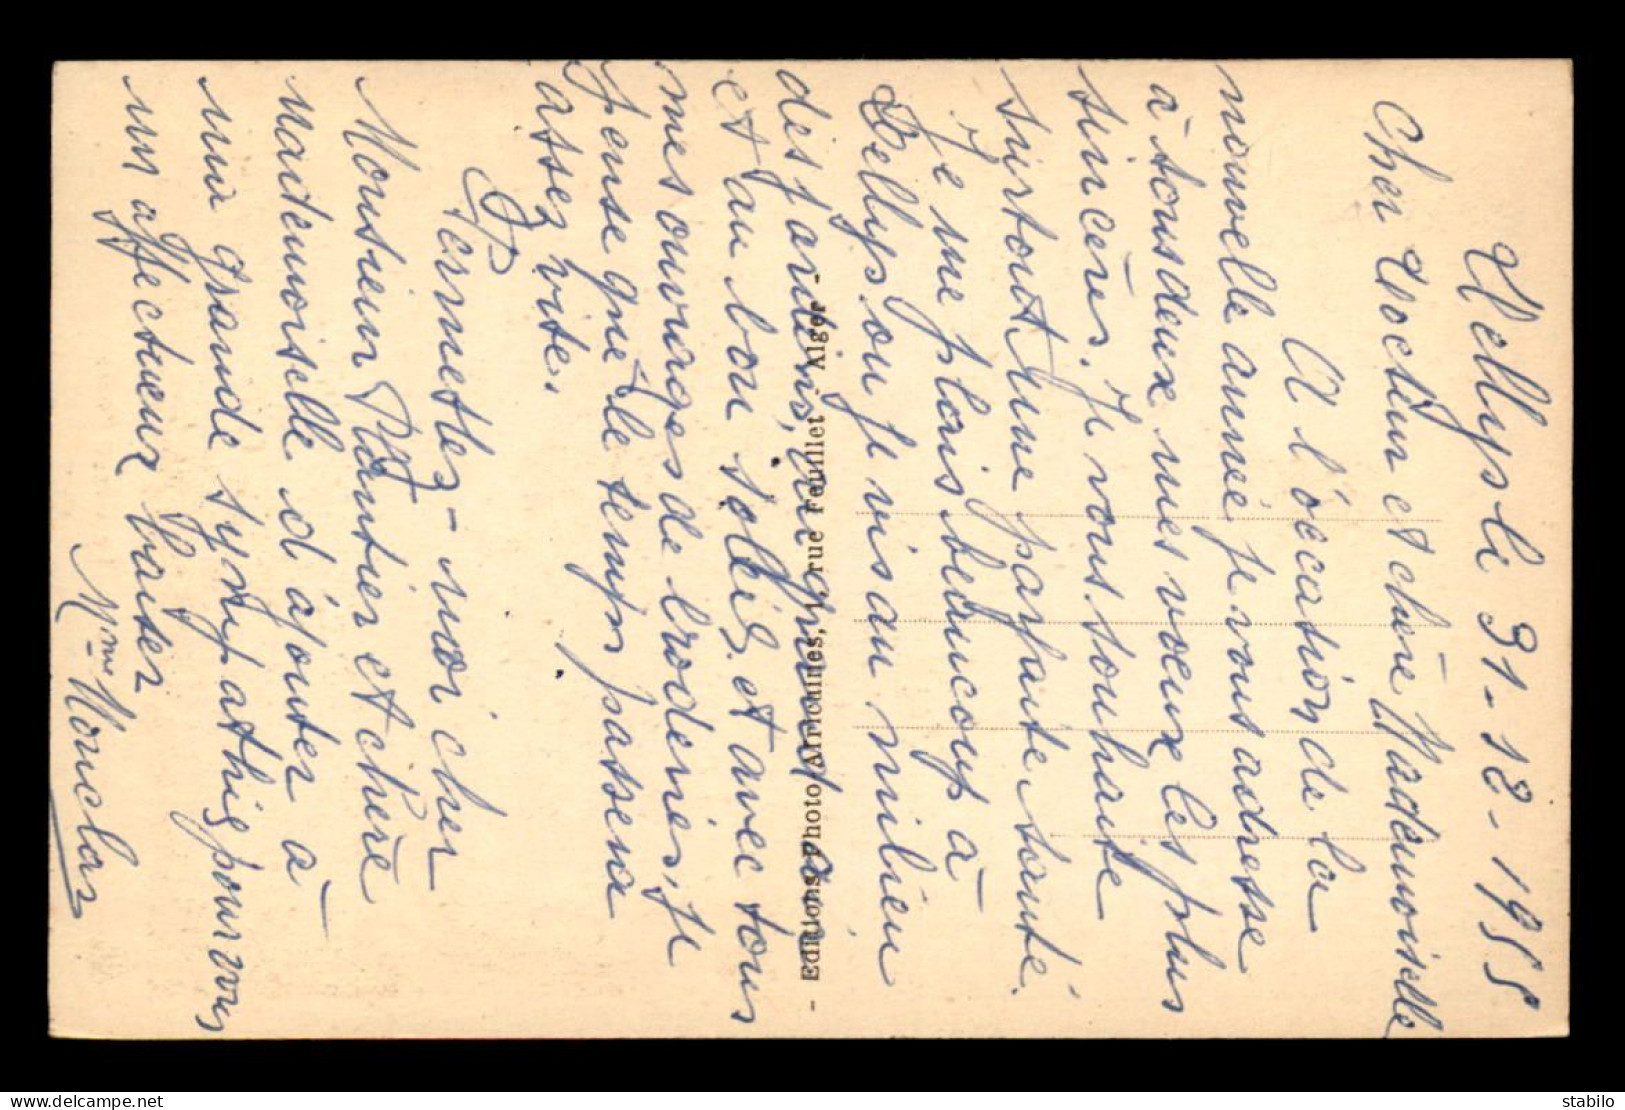 Hellyps le 31-12-1955
Cher Docteur et chère Mademoiselle
A l'occasion de la
nouvelle année je vous adresse
à tous deux mes voeux les plus
sincères. Je vous souhaite
surtout une parfaite santé.
Je me plais beaucoup à
Hellyps ou je vis au milieu
des jardins, au grand air
et au bon soleil et avec tous
mes ouvrages de broderies, je
pense que le temps passera
assez vite.
Permettez-moi cher
Monsieur Plantier et chère
Mademoiselle d'ajouter à
ma grande sympathie pour vous
un affectueux baiser
Mme Mouclar
- Editions Photo Africaines, 1, rue Feuillet - Alger -
www.delcampe.net
stabilo